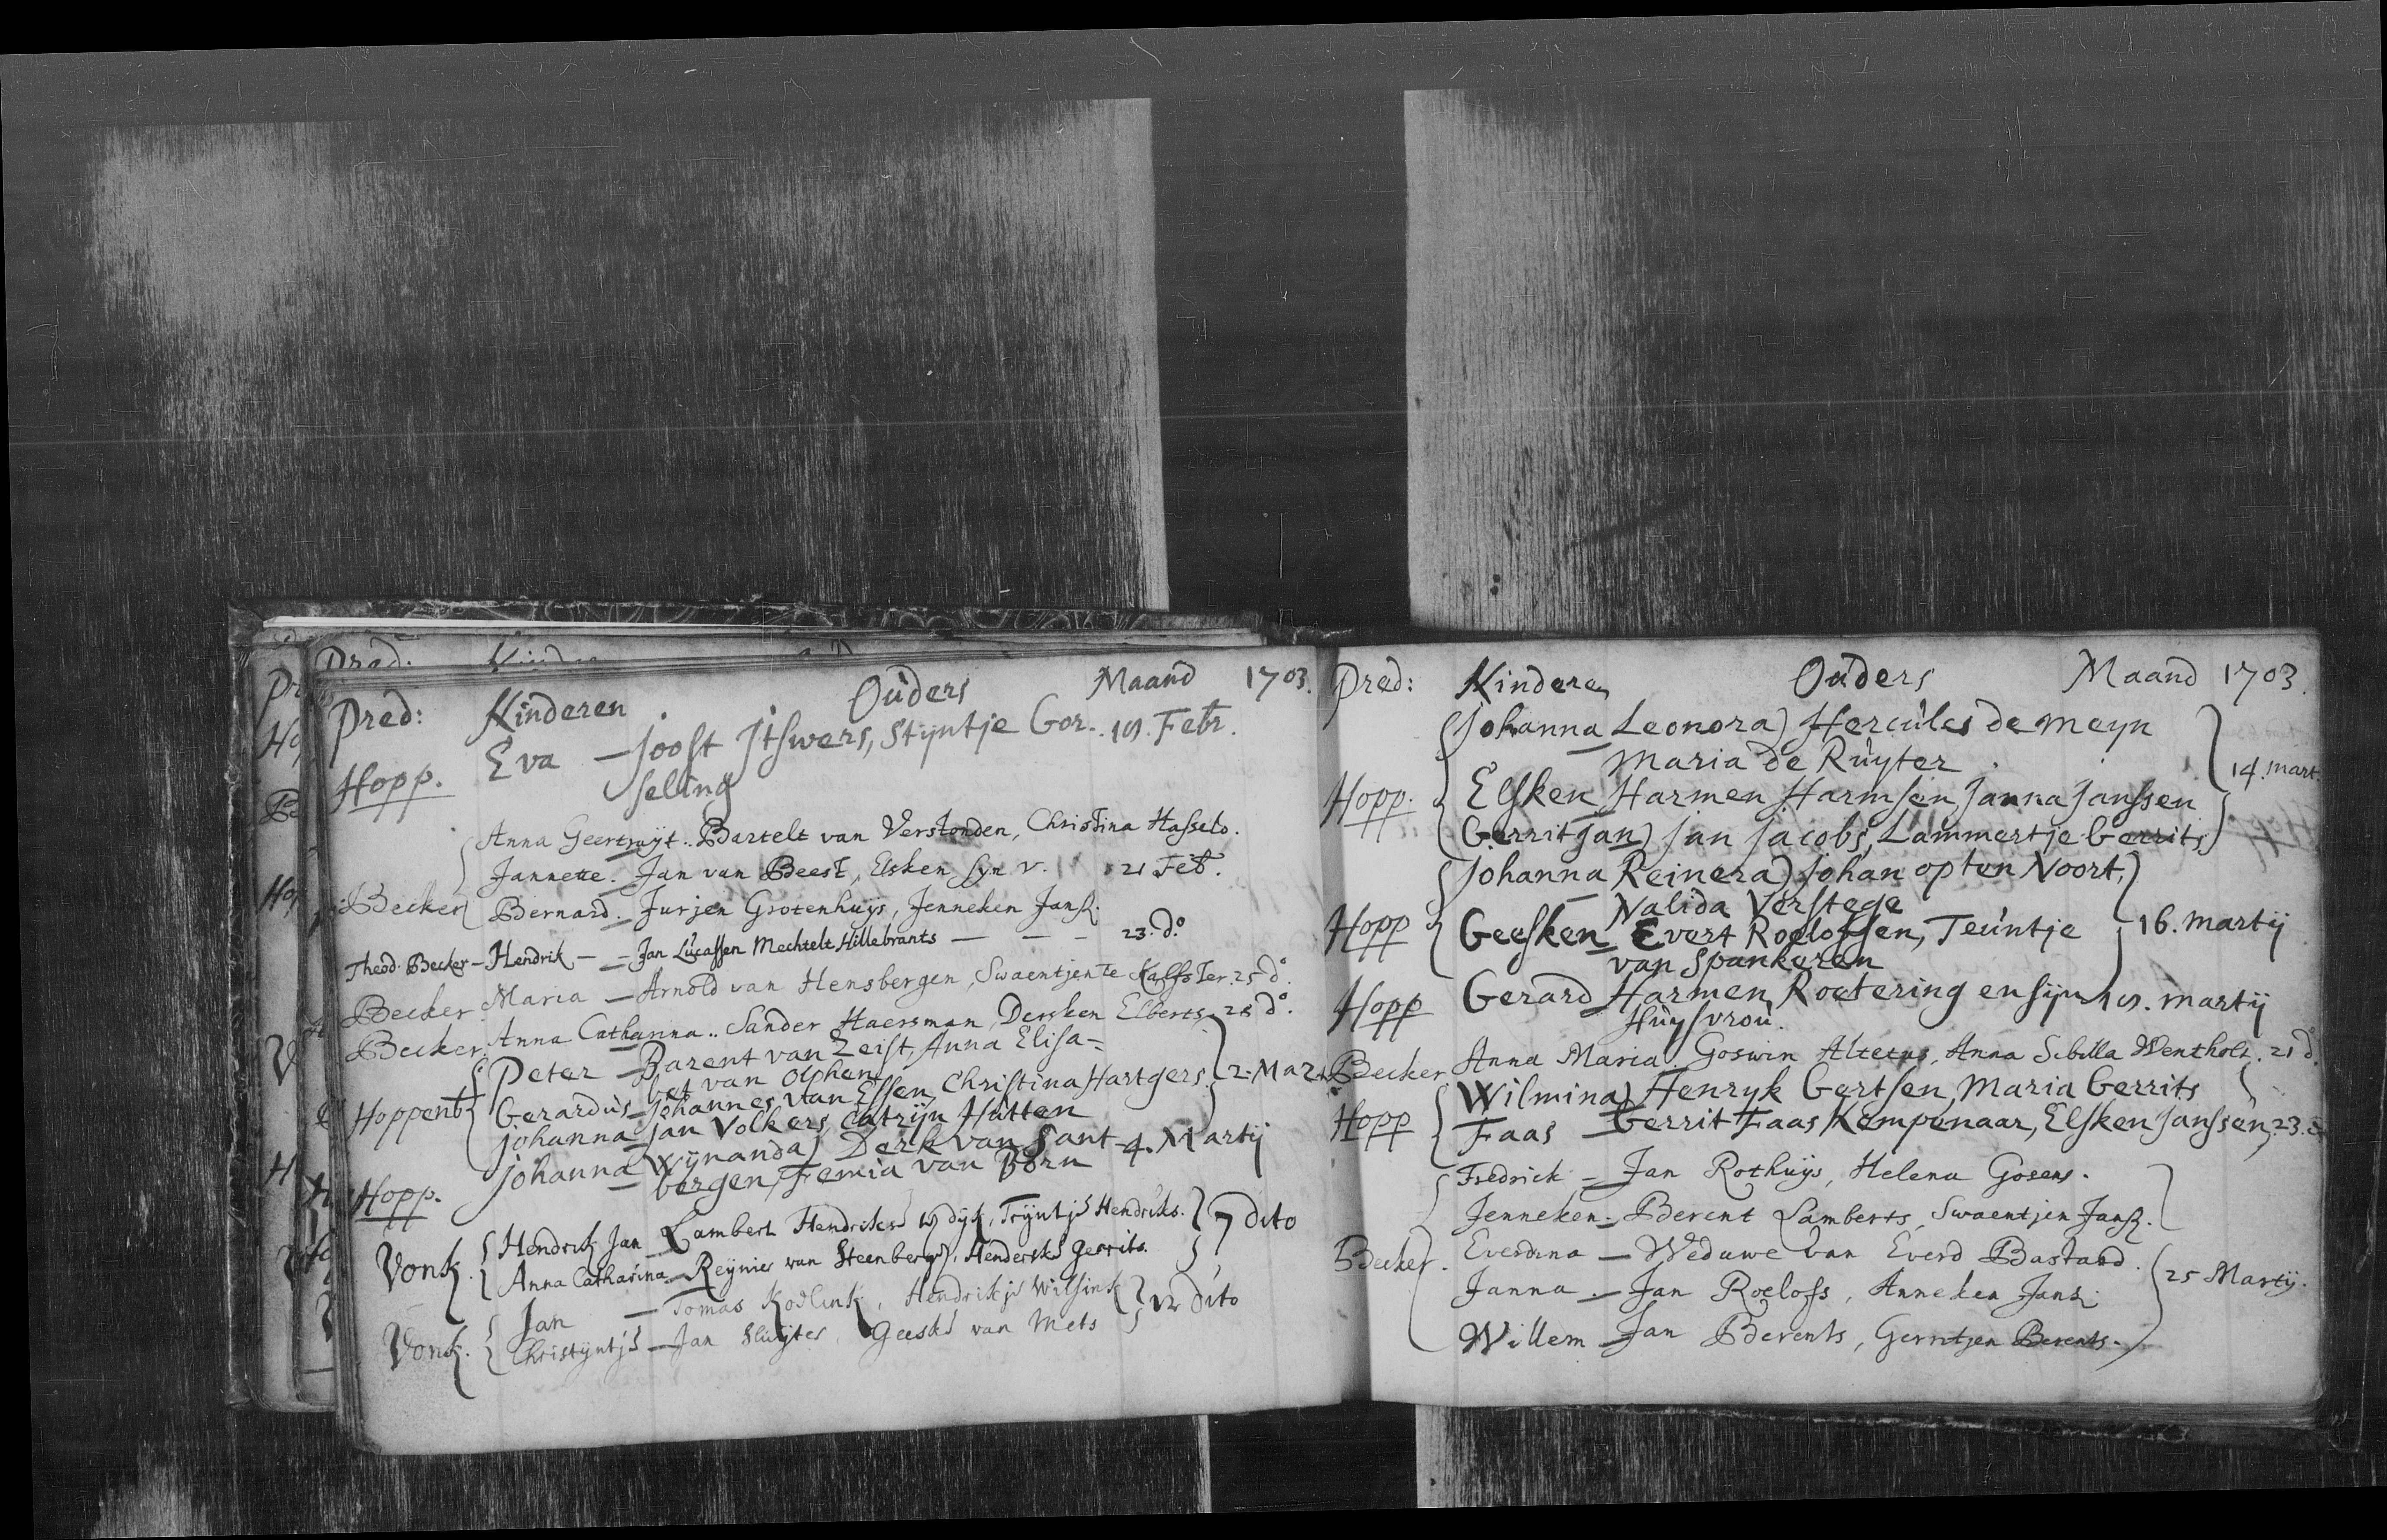 Pred: Kinderen Ouders Maand 1703.
Hopp. Eva — Joost Jtswers, Stijntje Gor- 19 Febr.
seling
Anna Geertruyt.. Bartelt van Verstonden, Christina Hasselo.
Jannette. Jan van Beest, Elsken syn v. 21 Feb.
Becker Bernard. Jurjen Grotenhuys, Jenneken Jans.
Theod. Becker — Hendrik — Jan Lucassen Mechtelt Hillebrants — — — 23. do
Becker Maria — Arnold van Hensbergen, Swaentjen te Kaffster. 25 do.
Becker. Anna Catharina.. Sander Haersman, Dersken Elberts. 28 do.
Peter — Barent van Zeist, Anna Elisa-
bet van Olphen
Hoppenb Gerardus — Johannes van Essen, Christina Hartgers 2. Mart
Johanna — Jan Volkers, Catrijn Hutten
Hopp. Johanna Wynanda) Derk van Sant- 4. Martij
bergen, Femia van Born
Vonk. Hendrik Jan — Lambert Hendriks Wydyk, Trijntje Hendriks. 7 dito
Anna Catharina — Reynier van Steenbergen, Henderske Gerrits.
Jan — Tomas Kodlink, Hendrikje Wilsink 12 dito
Vonk. Christyntje — Jan Sluyter, Geeske van Mets
Pred: Kinderen Ouders Maand 1703.
(Johanna Leonora) Hercules de Meyn
Maria de Ruyter. 14. mart.
Hopp. Elsken Harmen Harmsen, Janna Janssen
Gerrit Jan) Jan Jacobs, Lammertje Gerrits
Johanna Reinera) Johan op ten Noort,
Nalida Verstege
Hopp Geesken Evert Roelofsen, Teuntje 16. Martij
van Spankeren
Hopp Gerard Harmen Roetering en sijn 19. Martij
Huysvrou.
Becker Anna Maria. Goswin Altetus, Anna Sibilla Wentholt. 21 do.
Wilmina) Henryk Gertsen, Maria Gerrits
Hopp Faas — Gerrit Faas Kempenaar, Elsken Janssen, 23.
Fredrick — Jan Rothuys, Helena Gosens.
Jenneken — Berent Lamberts, Swaentjen Jans.
Becker. Everdina — Weduwe van Everd Bastard.
Janna. — Jan Roelofs, Anneken Jans. 25 Martij.
Willem — Jan Berents, Gerritjen Berents.